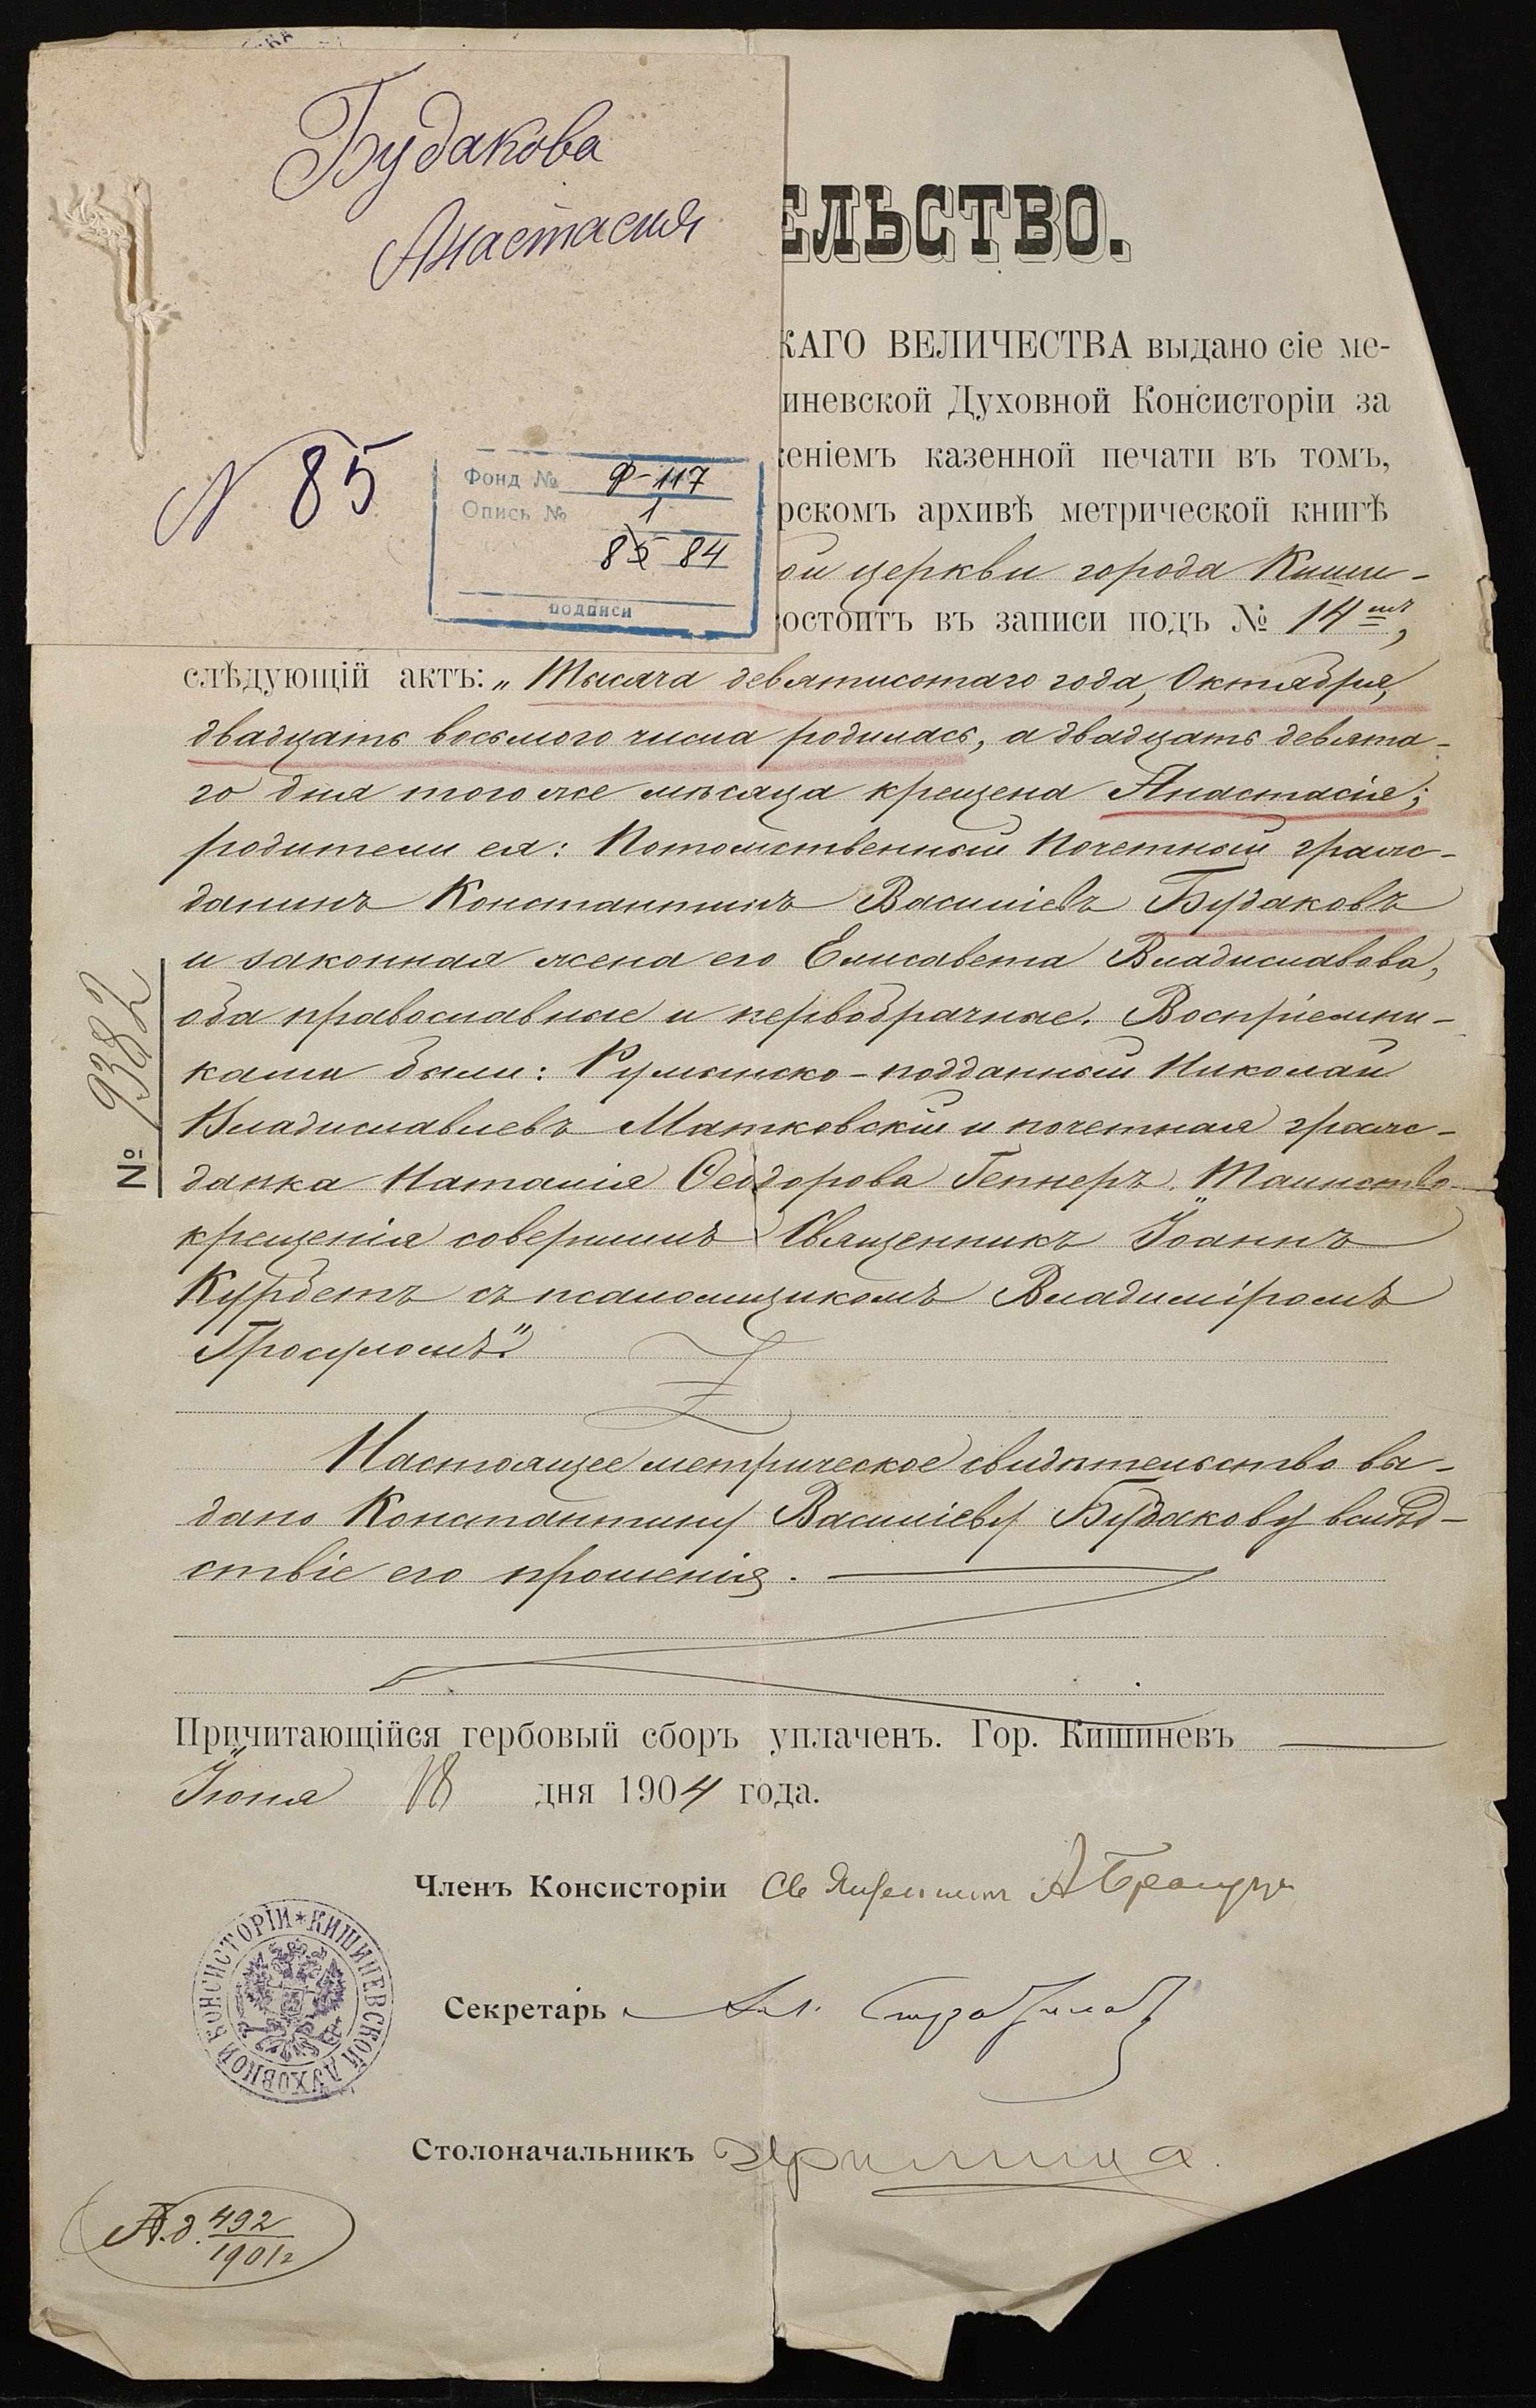 Будакова
Анастасия
N 85
Фонд № Ф-117
Опись № 1
85 84
подписи
ЕЛЬСТВО.
КАГО ВЕЛИЧЕСТВА выдано сіе ме-
иневской Духовной Консисторіи за
еніемъ казенной печати въ томъ,
рскомъ архивѣ метрической книгѣ
ой церкви города Киши-
остоитъ въ записи подъ № 14мъ,
слѣдующій актъ: „Тысяча девятисотаго года, Октября,
двадцать восьмого числа родилась, а двадцать девята-
го дня того же мѣсяца крещена Анастасія;
родители ея: Потомственный Почетный граж-
данинъ Константинъ Василіевъ Будаковъ
и законная жена его Елисавета Владиславова,
оба православные и первобрачные. Воспріемни-
ками были: Румынско-подданный Николай
Владиславлевъ Матковскій и почетная граж-
данка Наталія Ѳеодорова Геннеръ. Таинство
крещенія совершилъ Священникъ Іоаннъ
Курдетъ съ псаломщикомъ Владиміромъ
Настоящее метрическое свидѣтельство вы-
дано Константину Василіеву Будакову вслѣд-
ствіе его прошенія.
№ 9382
Причитающійся гербовый сборъ уплаченъ. Гор. Кишиневъ
Іюня 18 дня 1904 года.
Членъ Консисторіи Священникъ А
Секретарь
Столоначальникъ
КИШИНЕВСКОЙ ДУХОВНОЙ КОНСИСТОРІИ *
А.д. 492
1901/2